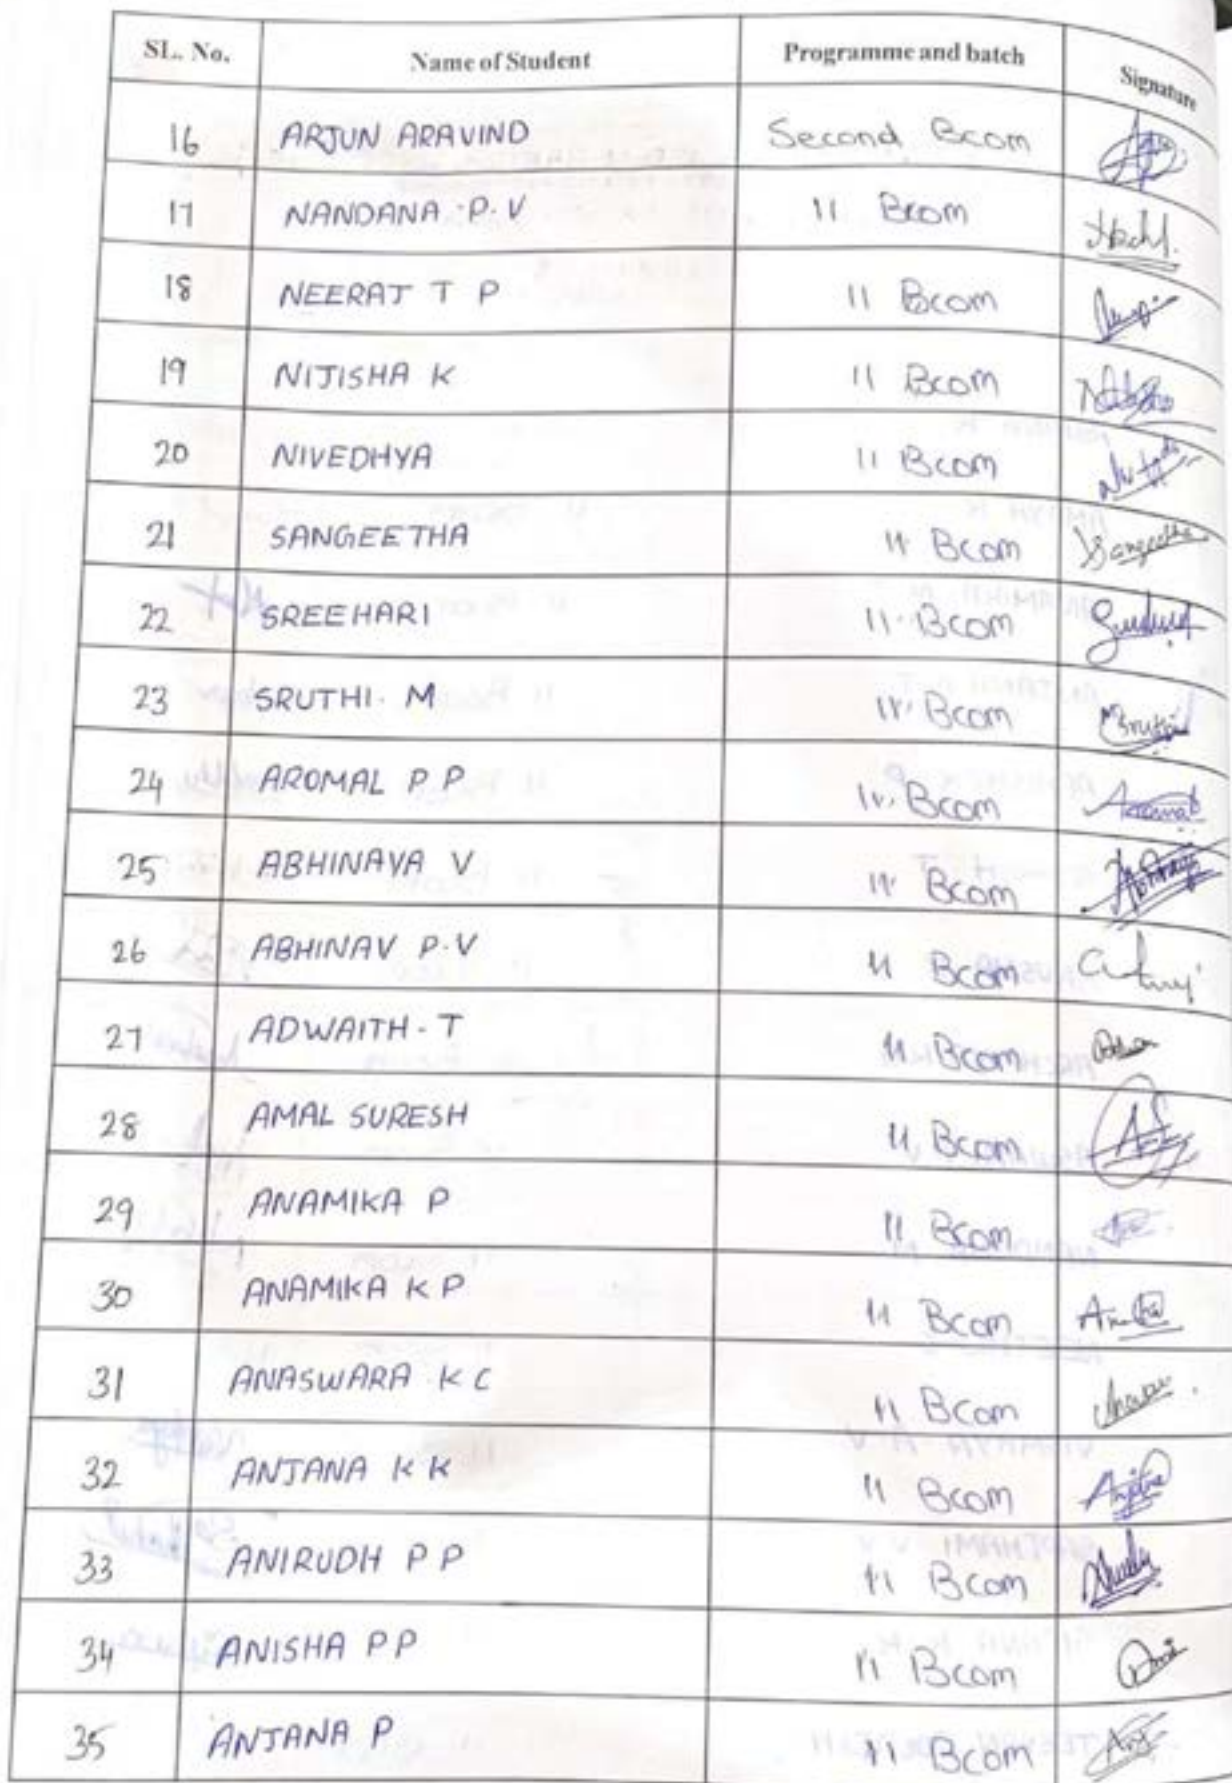 SL. No. Name of Student Programme and batch Signature
16 ARJUN ARAVIND Second Bcom
17 NANDANA P.V 11 Bcom
18 NEERAJ T P 11 Bcom
19 NIJISHA K 11 Bcom
20 NIVEDHYA 11 Bcom
21 SANGEETHA 11 Bcom Sangeetha
22 SREEHARI 11 Bcom
23 SRUTHI. M 11 Bcom Sruthi
24 AROMAL P P 11 Bcom
25 ABHINAYA V 11 Bcom
26 ABHINAV P.V 11 Bcom
27 ADWAITH - T 11 Bcom
28 AMAL SURESH 11 Bcom
29 ANAMIKA P 11 Bcom
30 ANAMIKA K P 11 Bcom
31 ANASWARA K C 11 Bcom
32 ANJANA K K 11 Bcom
33 ANIRUDH P P 11 Bcom
34 ANISHA P P 11 Bcom
35 ANJANA P 11 Bcom